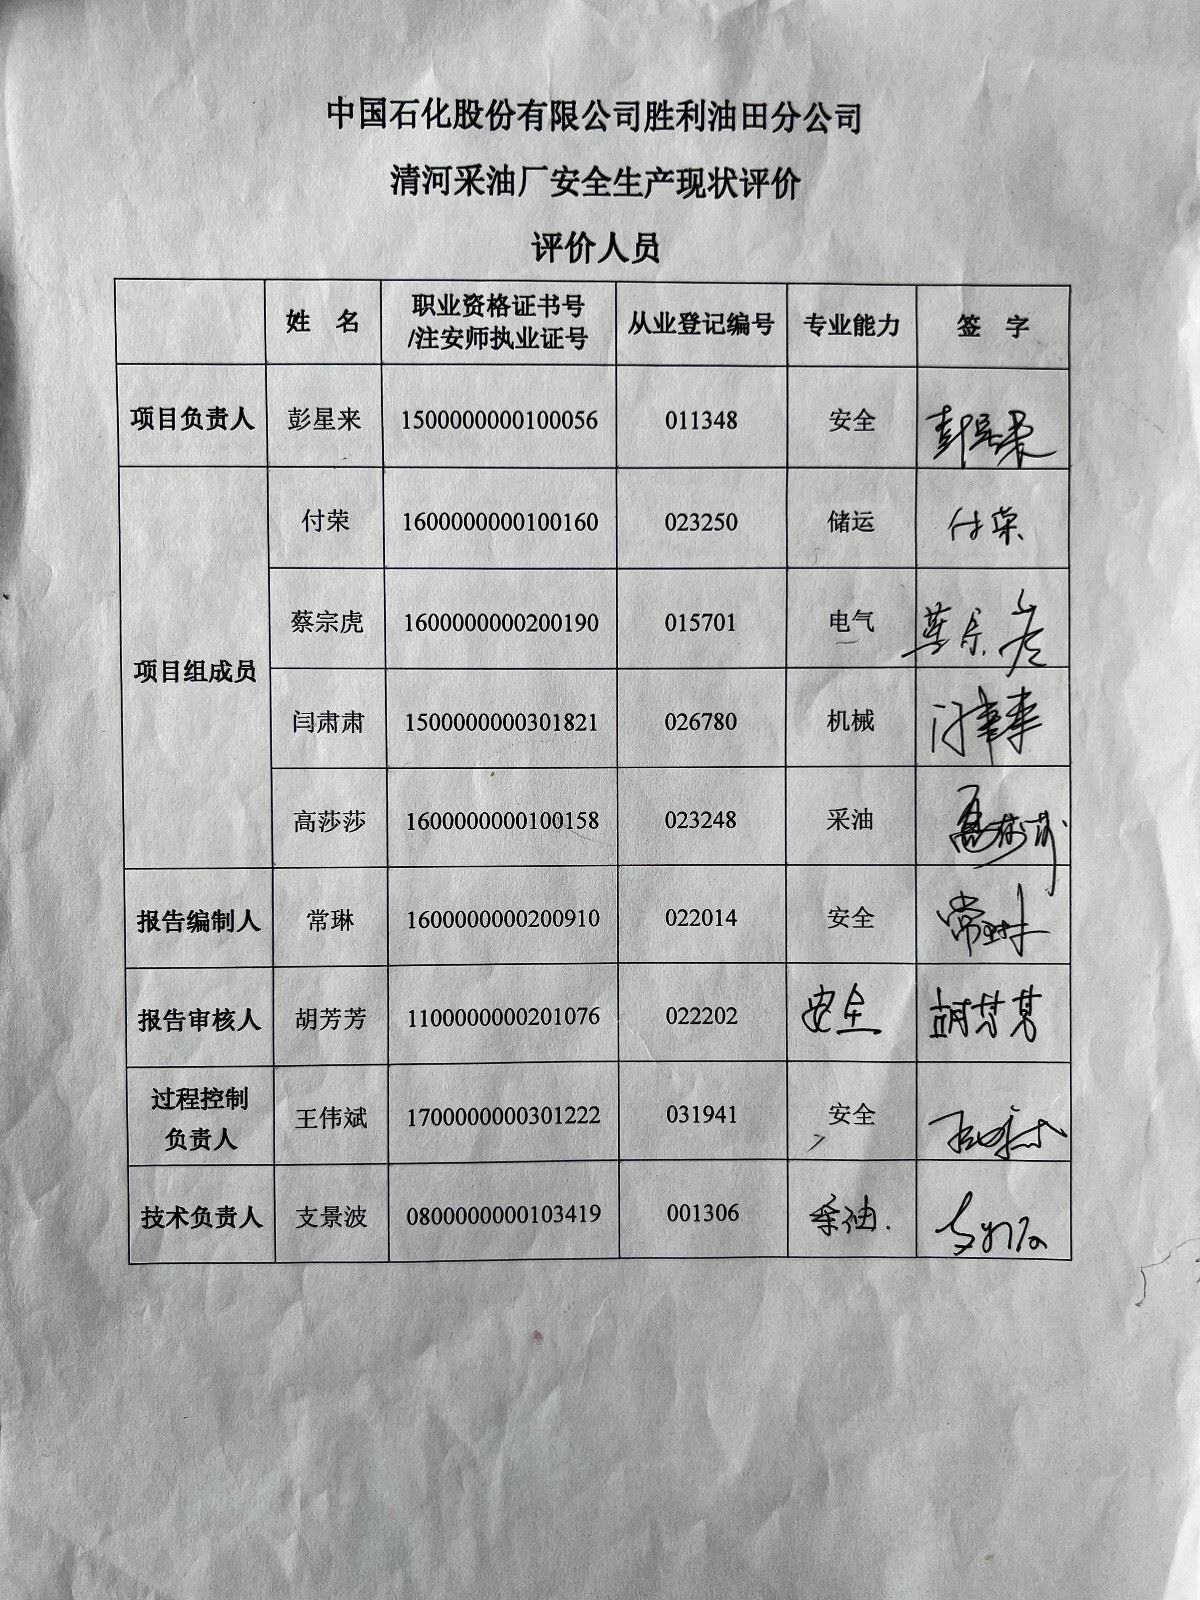 中国石化股份有限公司胜利油田分公司
清河采油厂安全生产现状评价
评价人员
姓 名 职业资格证书号/注安师执业证号 从业登记编号 专业能力 签 字
项目负责人 彭星来 1500000000100056 011348 安全 彭星来
项目组成员 付荣 1600000000100160 023250 储运 付荣
蔡宗虎 1600000000200190 015701 电气 蔡宗虎
闫肃肃 1500000000301821 026780 机械 闫肃肃
高莎莎 1600000000100158 023248 采油 高莎莎
报告编制人 常琳 1600000000200910 022014 安全 常琳
报告审核人 胡芳芳 1100000000201076 022202 安全 胡芳芳
过程控制负责人 王伟斌 1700000000301222 031941 安全 王伟斌
技术负责人 支景波 0800000000103419 001306 采油 支景波